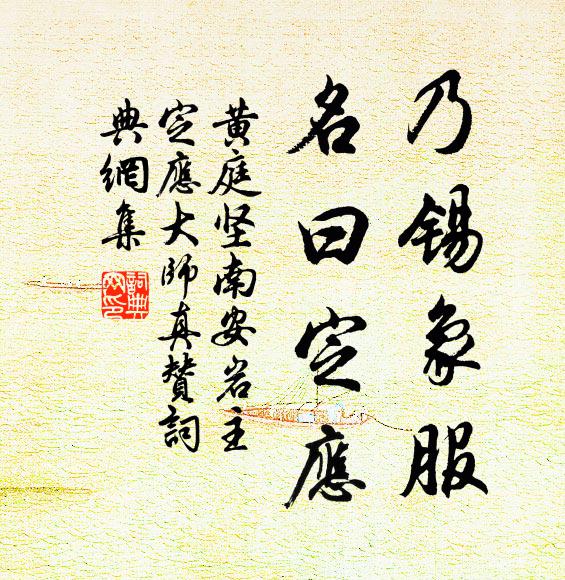 乃锡象服
名曰定應
黄庭坚南安岩主
定應大师真赞詞
典網集
詞典网印